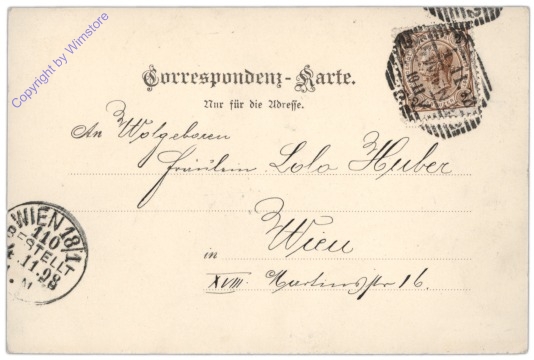 Copyright by Wimstore
Correspondenz-Karte.
Nur für die Adresse.
An Wolgeboren
Fräulein Lola Huber
Wien
in
XVIII. Martinsstr 16.
WIEN 18/1
110
BESTELLT
11.98